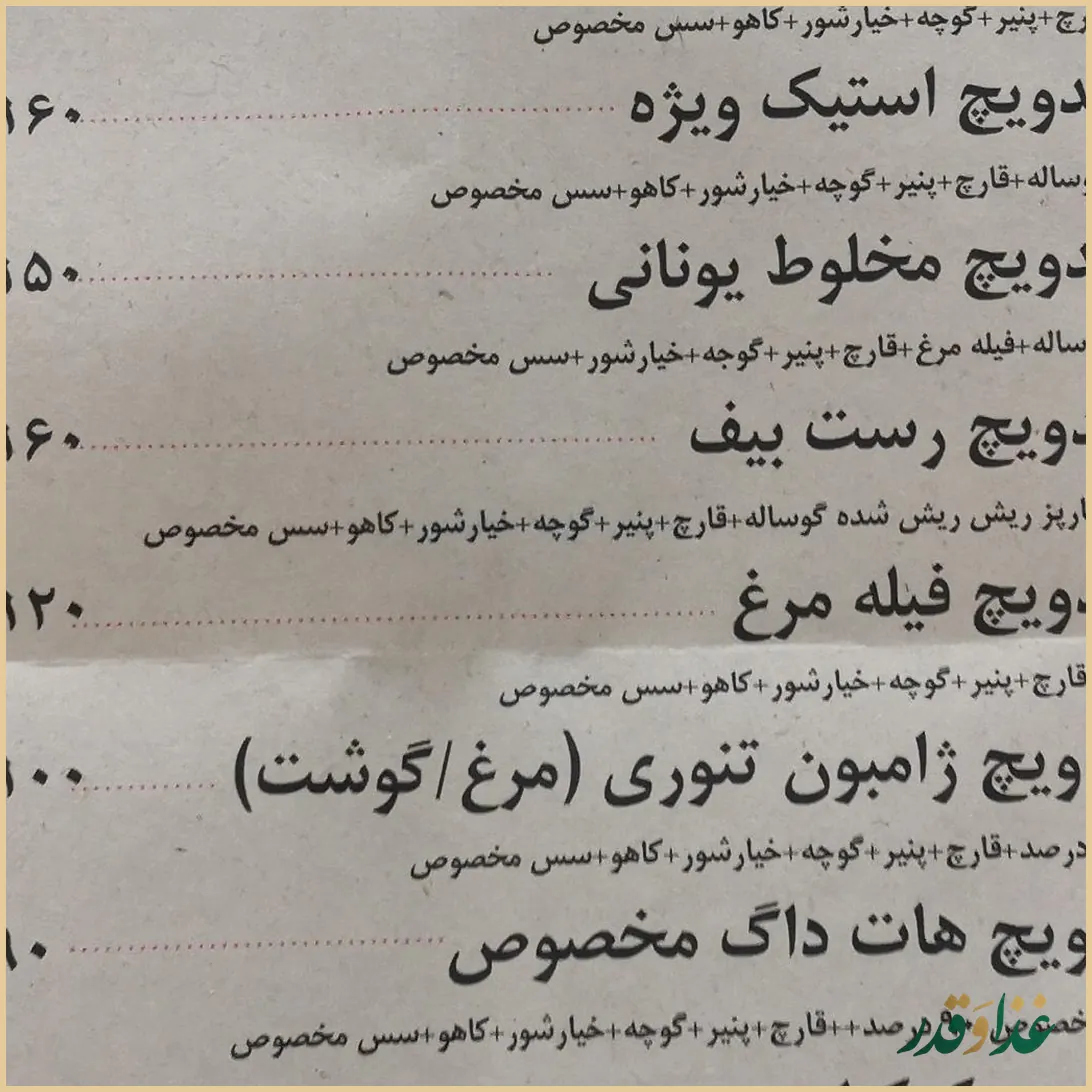 پنیر+گوچه+خیارشور+کاهو+سس مخصوص
استیک ویژه ۱۶۰
قارچ+پنیر+گوچه+خیارشور+کاهو+سس مخصوص
مخلوط یونانی ۱۵۰
فیله مرغ+قارچ+پنیر+گوجه+خیارشور+سس مخصوص
رست بیف ۱۶۰
ریش ریش شده گوساله+قارچ+پنیر+گوچه+خیارشور+کاهو+سس مخصوص
فیله مرغ ۱۲۰
قارچ+پنیر+گوچه+خیارشور+کاهو+سس مخصوص
ژامبون تنوری (مرغ/گوشت) ۱۰۰
درصد+قارچ+پنیر+گوچه+خیارشور+کاهو+سس مخصوص
هات داگ مخصوص
درصد++قارچ+پنیر+گوچه+خیارشور+کاهو+سس مخصوص
غذا وَ قدر